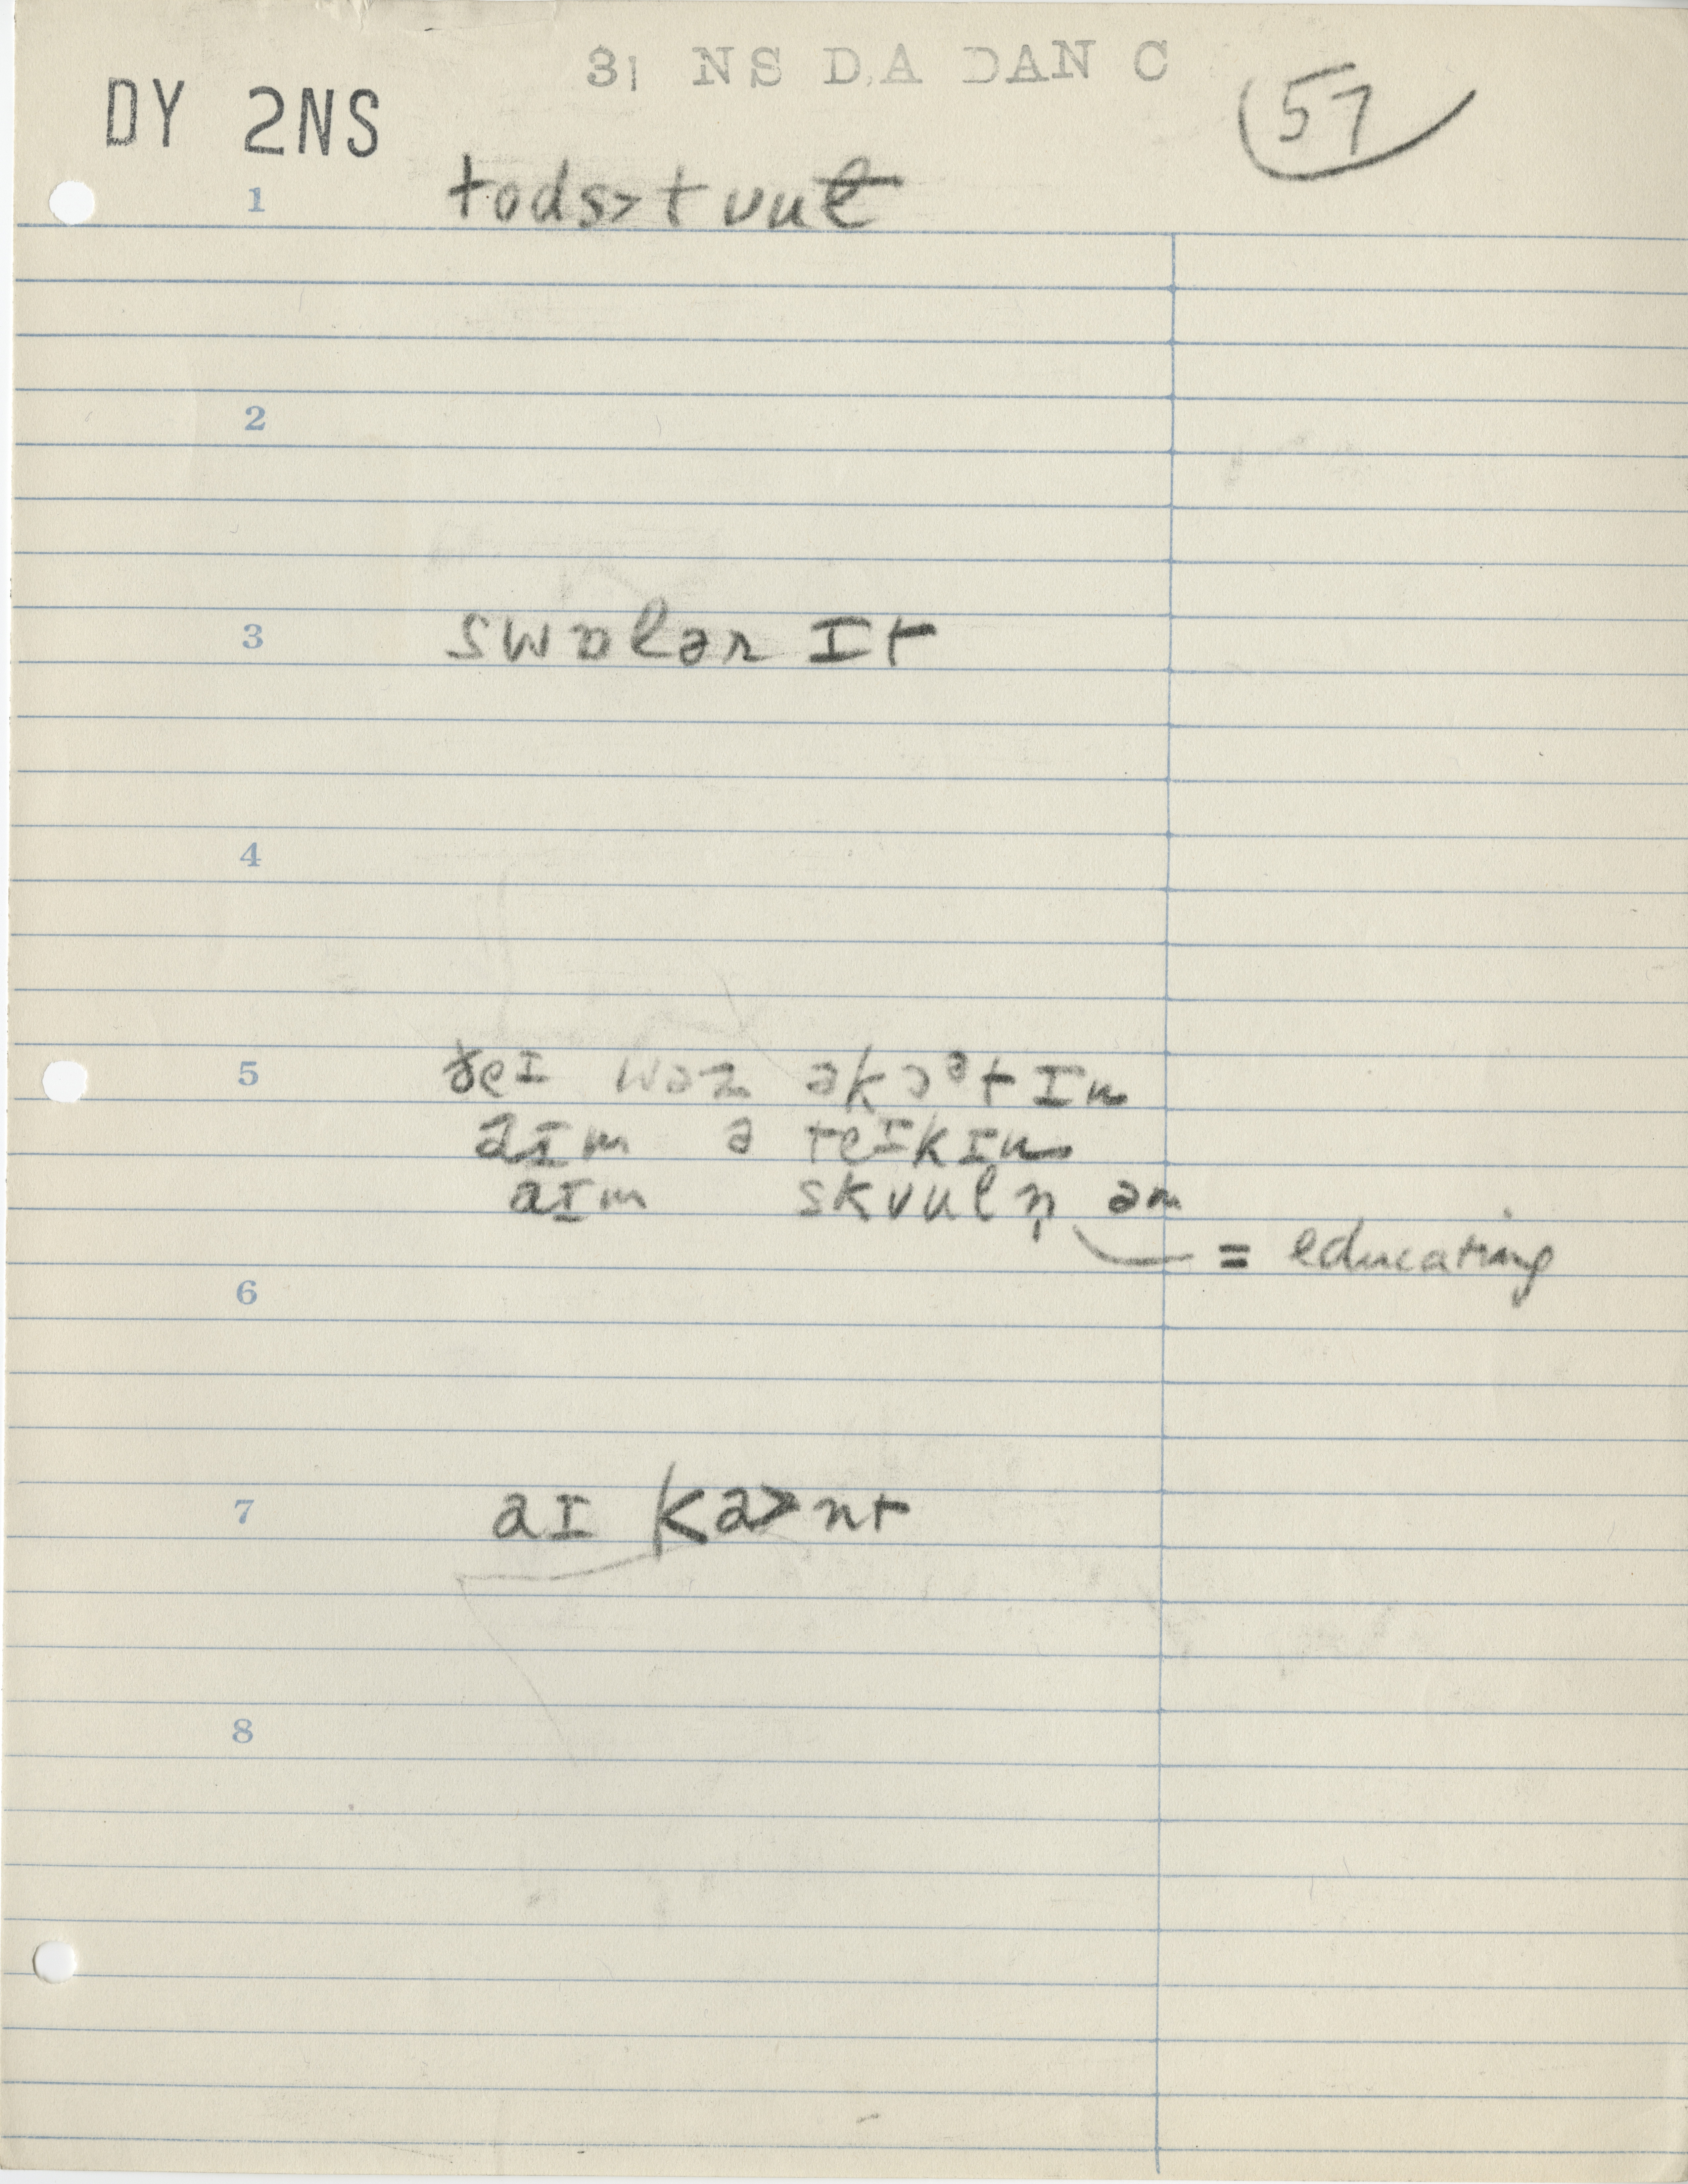 3| NS D.A DAN C
DY 2NS
57
1 tods˃t vuɫ
2
3 swɒlər ɪt
4
5 ðeɪ wəz əkɔᵊtɪn
aɪm ə teɪkɪn
aɪm skvuln̩ əm
= educating
6
7 aɪ ka˃nt
8